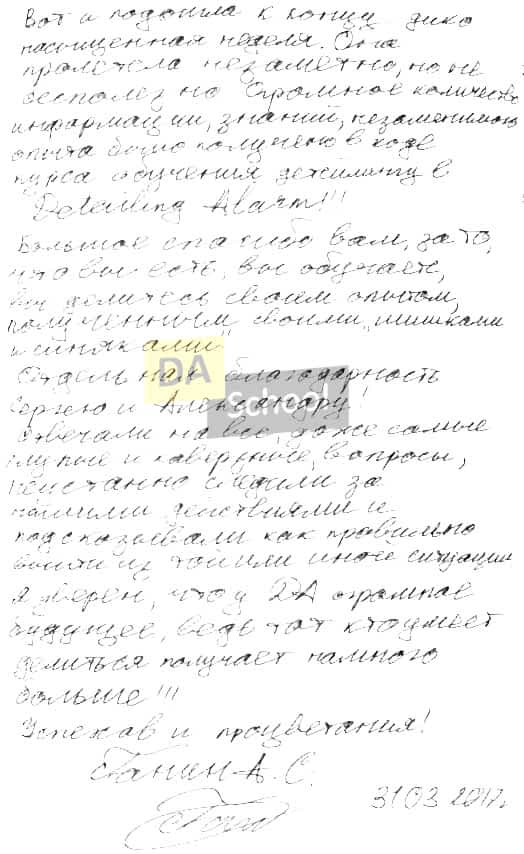 Вот и подошла к концу дико
насыщенная неделя. Она
пролетела незаметно, но не
бесполезно. Огромное количество
информации, знаний, незаменимого
опыта было получено в ходе
курса обучения детейлингу в
Detailing Alarm!!!
Большое спасибо вам, за то,
что вы есть, вы обучаете,
вы делитесь своим опытом,
полученным своими „шишками
и синяками"
DA
School
Отдельная благодарность
Сергею и Александру!
Отвечали на все, даже самые
глупые и каверзные, вопросы,
неустанно следили за
нашими действиями и
подсказывали как правильно
выйти из той или иной ситуации
Я уверен, что у DA огромное
будущее, ведь тот кто умеет
делиться получает намного
больше!!!
Успехов и процветания!
А. С.
31 03 2017г.